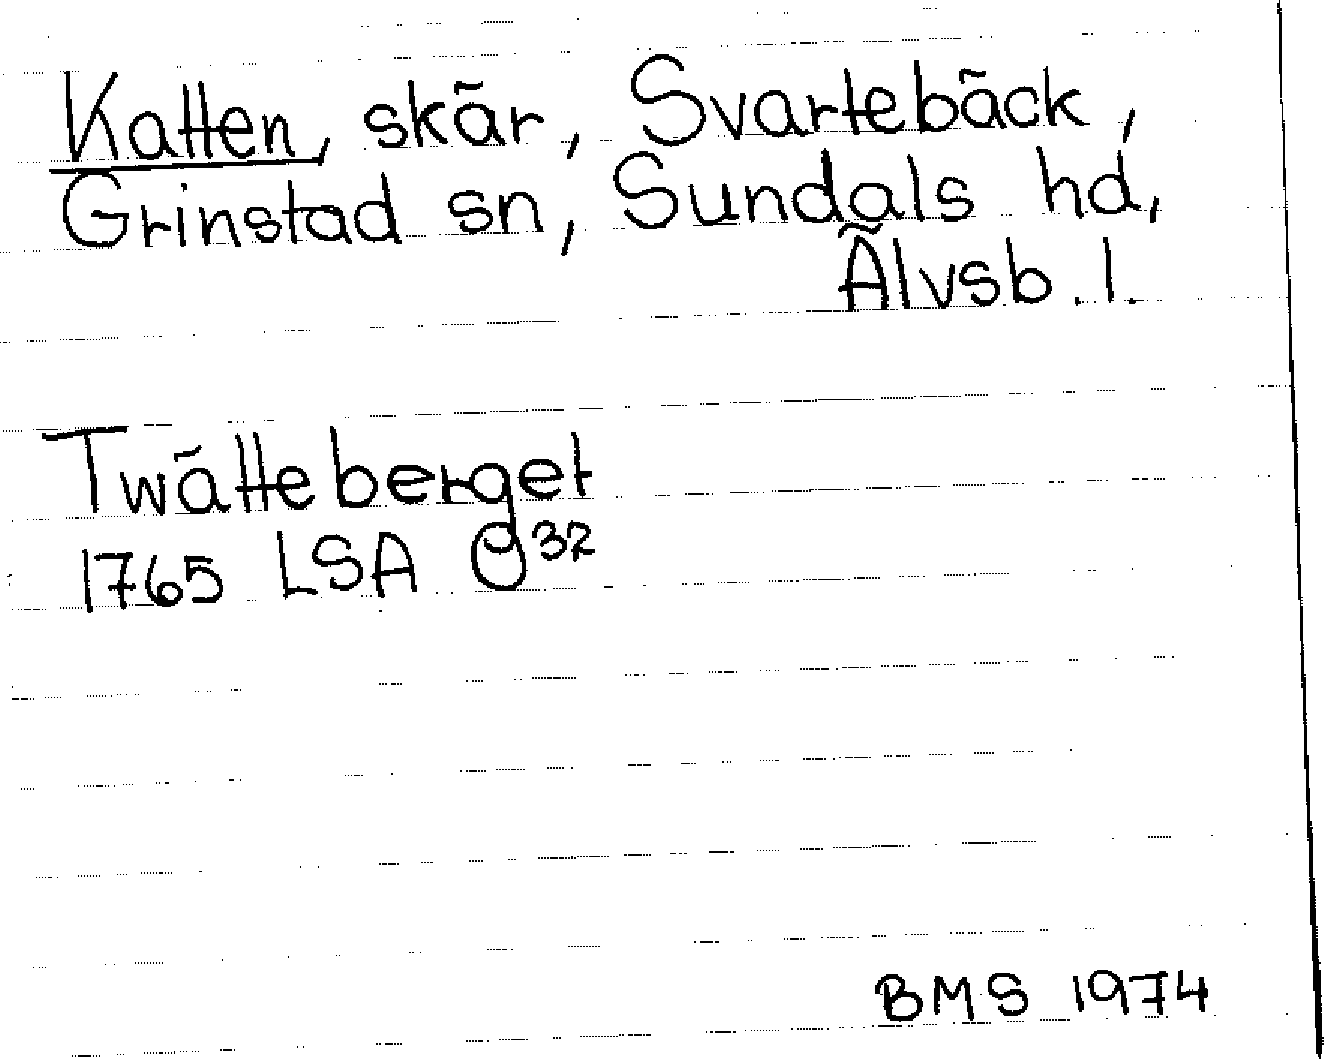 Katten, skär, Svartebäck,
Grinstad sn, Sundals hd,
Älvsb. l.
Twätteberget
1765 LSA O32
BMS 1974